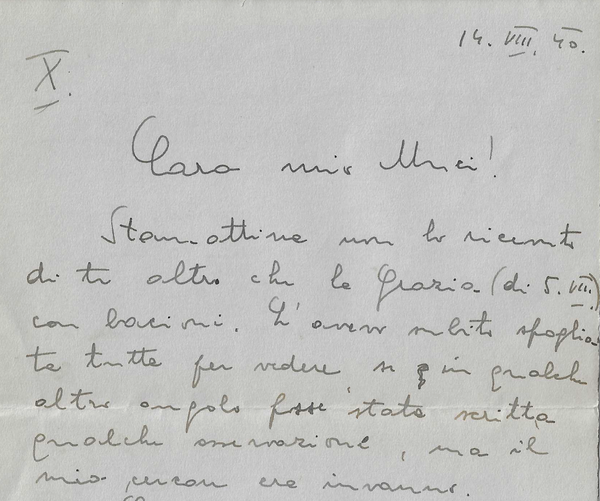 14. VIII. 40.
X.
Caro mio Muci!
Stamattina non ho ricevuto
di te altro che la Grazia (di 5. VIII.)
con bacioni. L'avevo subito sfoglia
ta tutta per vedere se in qualche
altro angolo fosse stata scritta
qualche osservazione, ma il
mio cercar era invano.